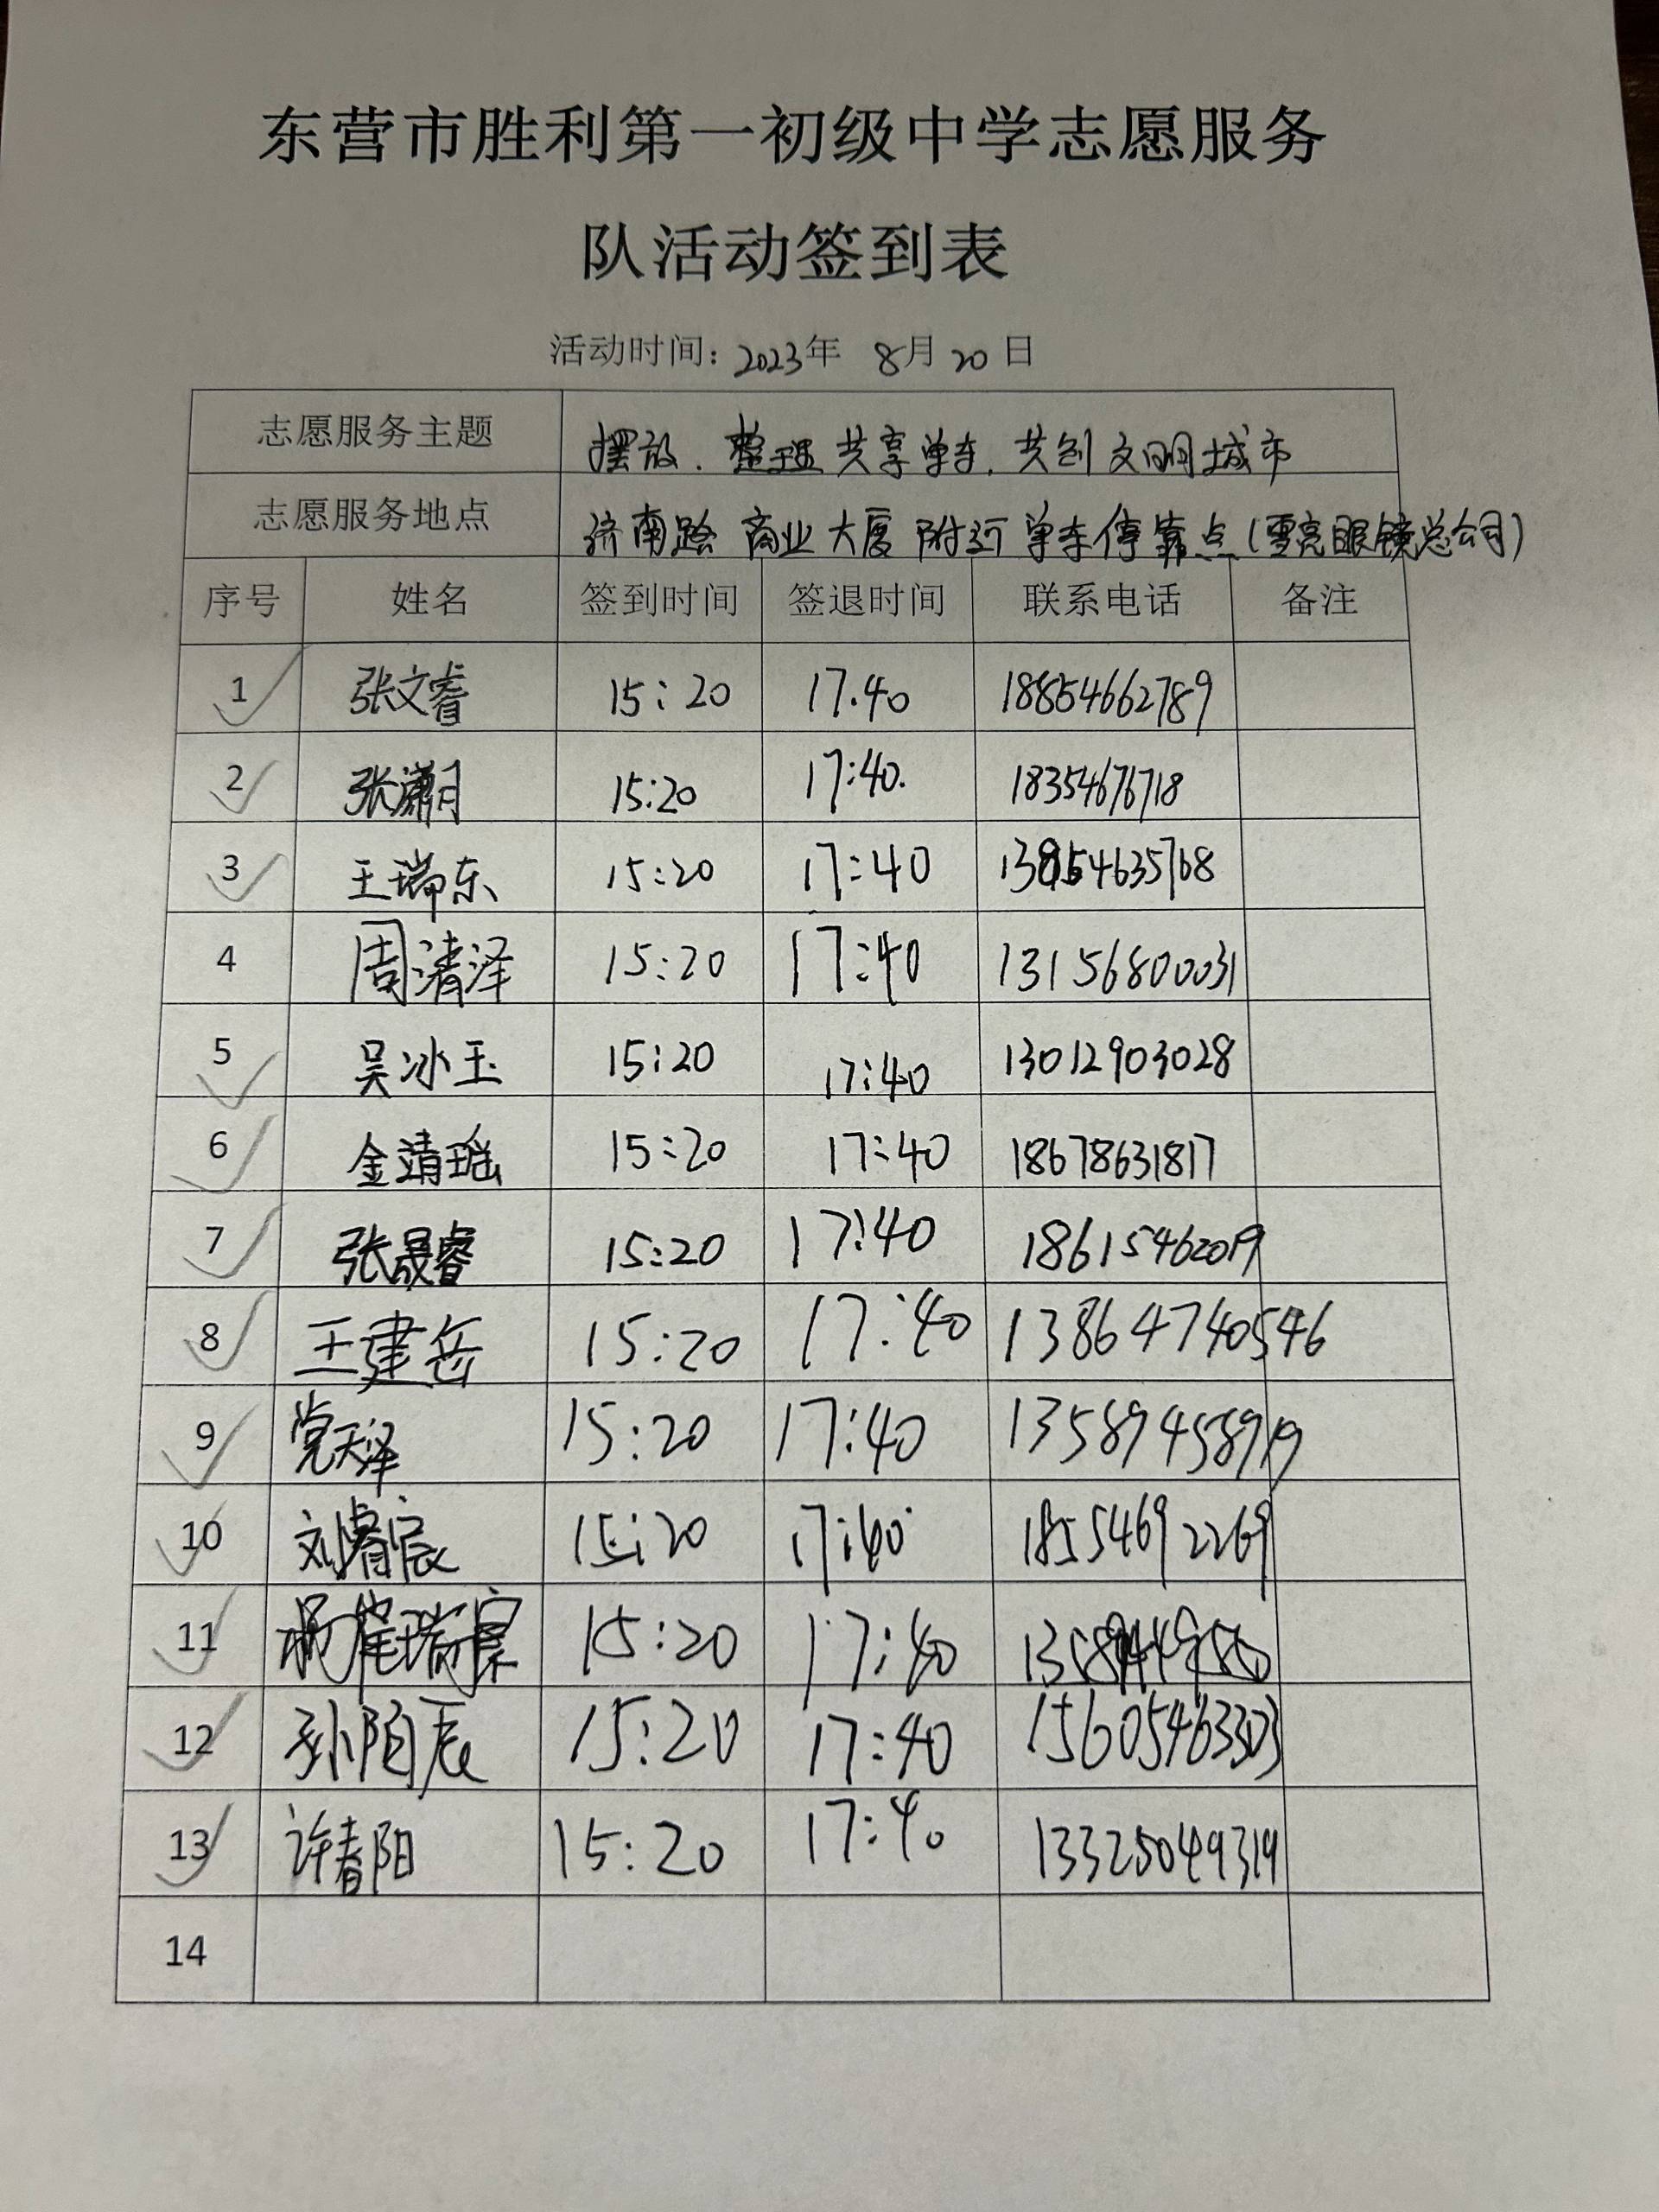 东营市胜利第一初级中学志愿服务
队活动签到表
活动时间：2023年 8月20日
志愿服务主题 摆放、整理共享单车，共创文明城市
志愿服务地点 济南路 商业大厦附近单车停靠点（雪亮眼镜总公司）
序号 姓名 签到时间 签退时间 联系电话 备注
1 张文睿 15:20 17.40 18854662789
2 张潇月 15:20 17:40. 18354676718
3 王瑞东 15:20 17:40
4 周清泽 15:20 17:40 13156800031
5 吴冰玉 15:20 17:40 13012903028
6 金靖瑶 15:20 17:40 18678631817
7 张晟睿 15:20 17:40 18615462019
8 王建岳 15:20 17:40 13864740546
9 党天泽 15:20 17:40
10 刘睿宸 15:20 17:40 18554692269
11 15:20 17:40
12 孙陌辰 15:20 17:40 15605463303
13 许春阳 15:20 17:40 13325049319
14